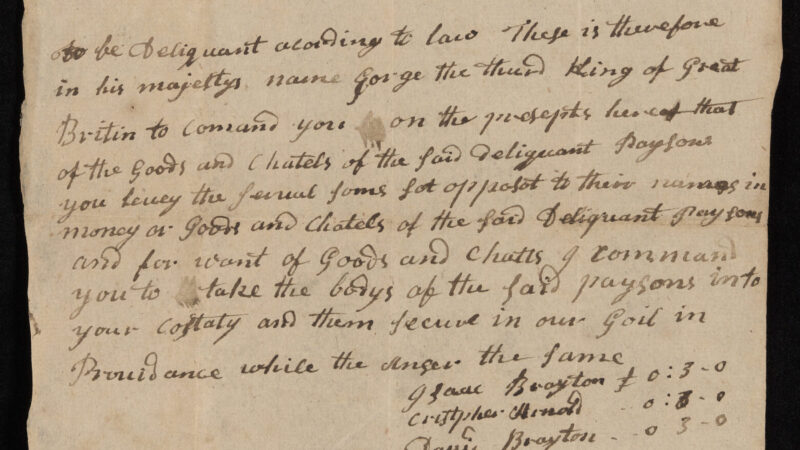 to be Deliquant acording to law These is therefore
in his majestys name Gorge the third King of Great
Britin to Comand you on the presepts hereof that
of the Goods and Chatels of the said deliquant Paysons
you levey the serual soms sot opposot to their names in
money or Goods and Chatels of the said Deliquant paysons
and for want of Goods and Chatts I command
you to take the bodys of the said paysons into
your Costaty and them secure in our Goil in
Providance while the Anser the same
Isaac Brayton £ 0:3-0
Cristpher Arnold .. 0:3-0
Brayton .. 0 3-0